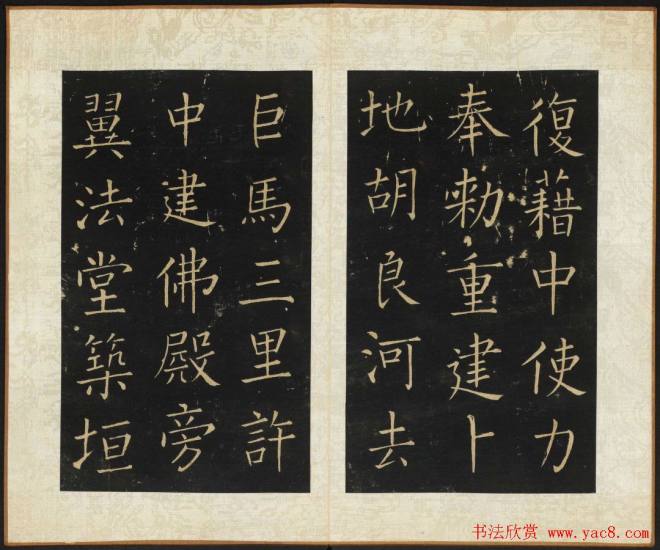 復藉中使力
奉勑重建卜
地胡良河去
巨馬三里許
中建佛殿旁
翼法堂築垣
书法欣赏 www.yac8.com